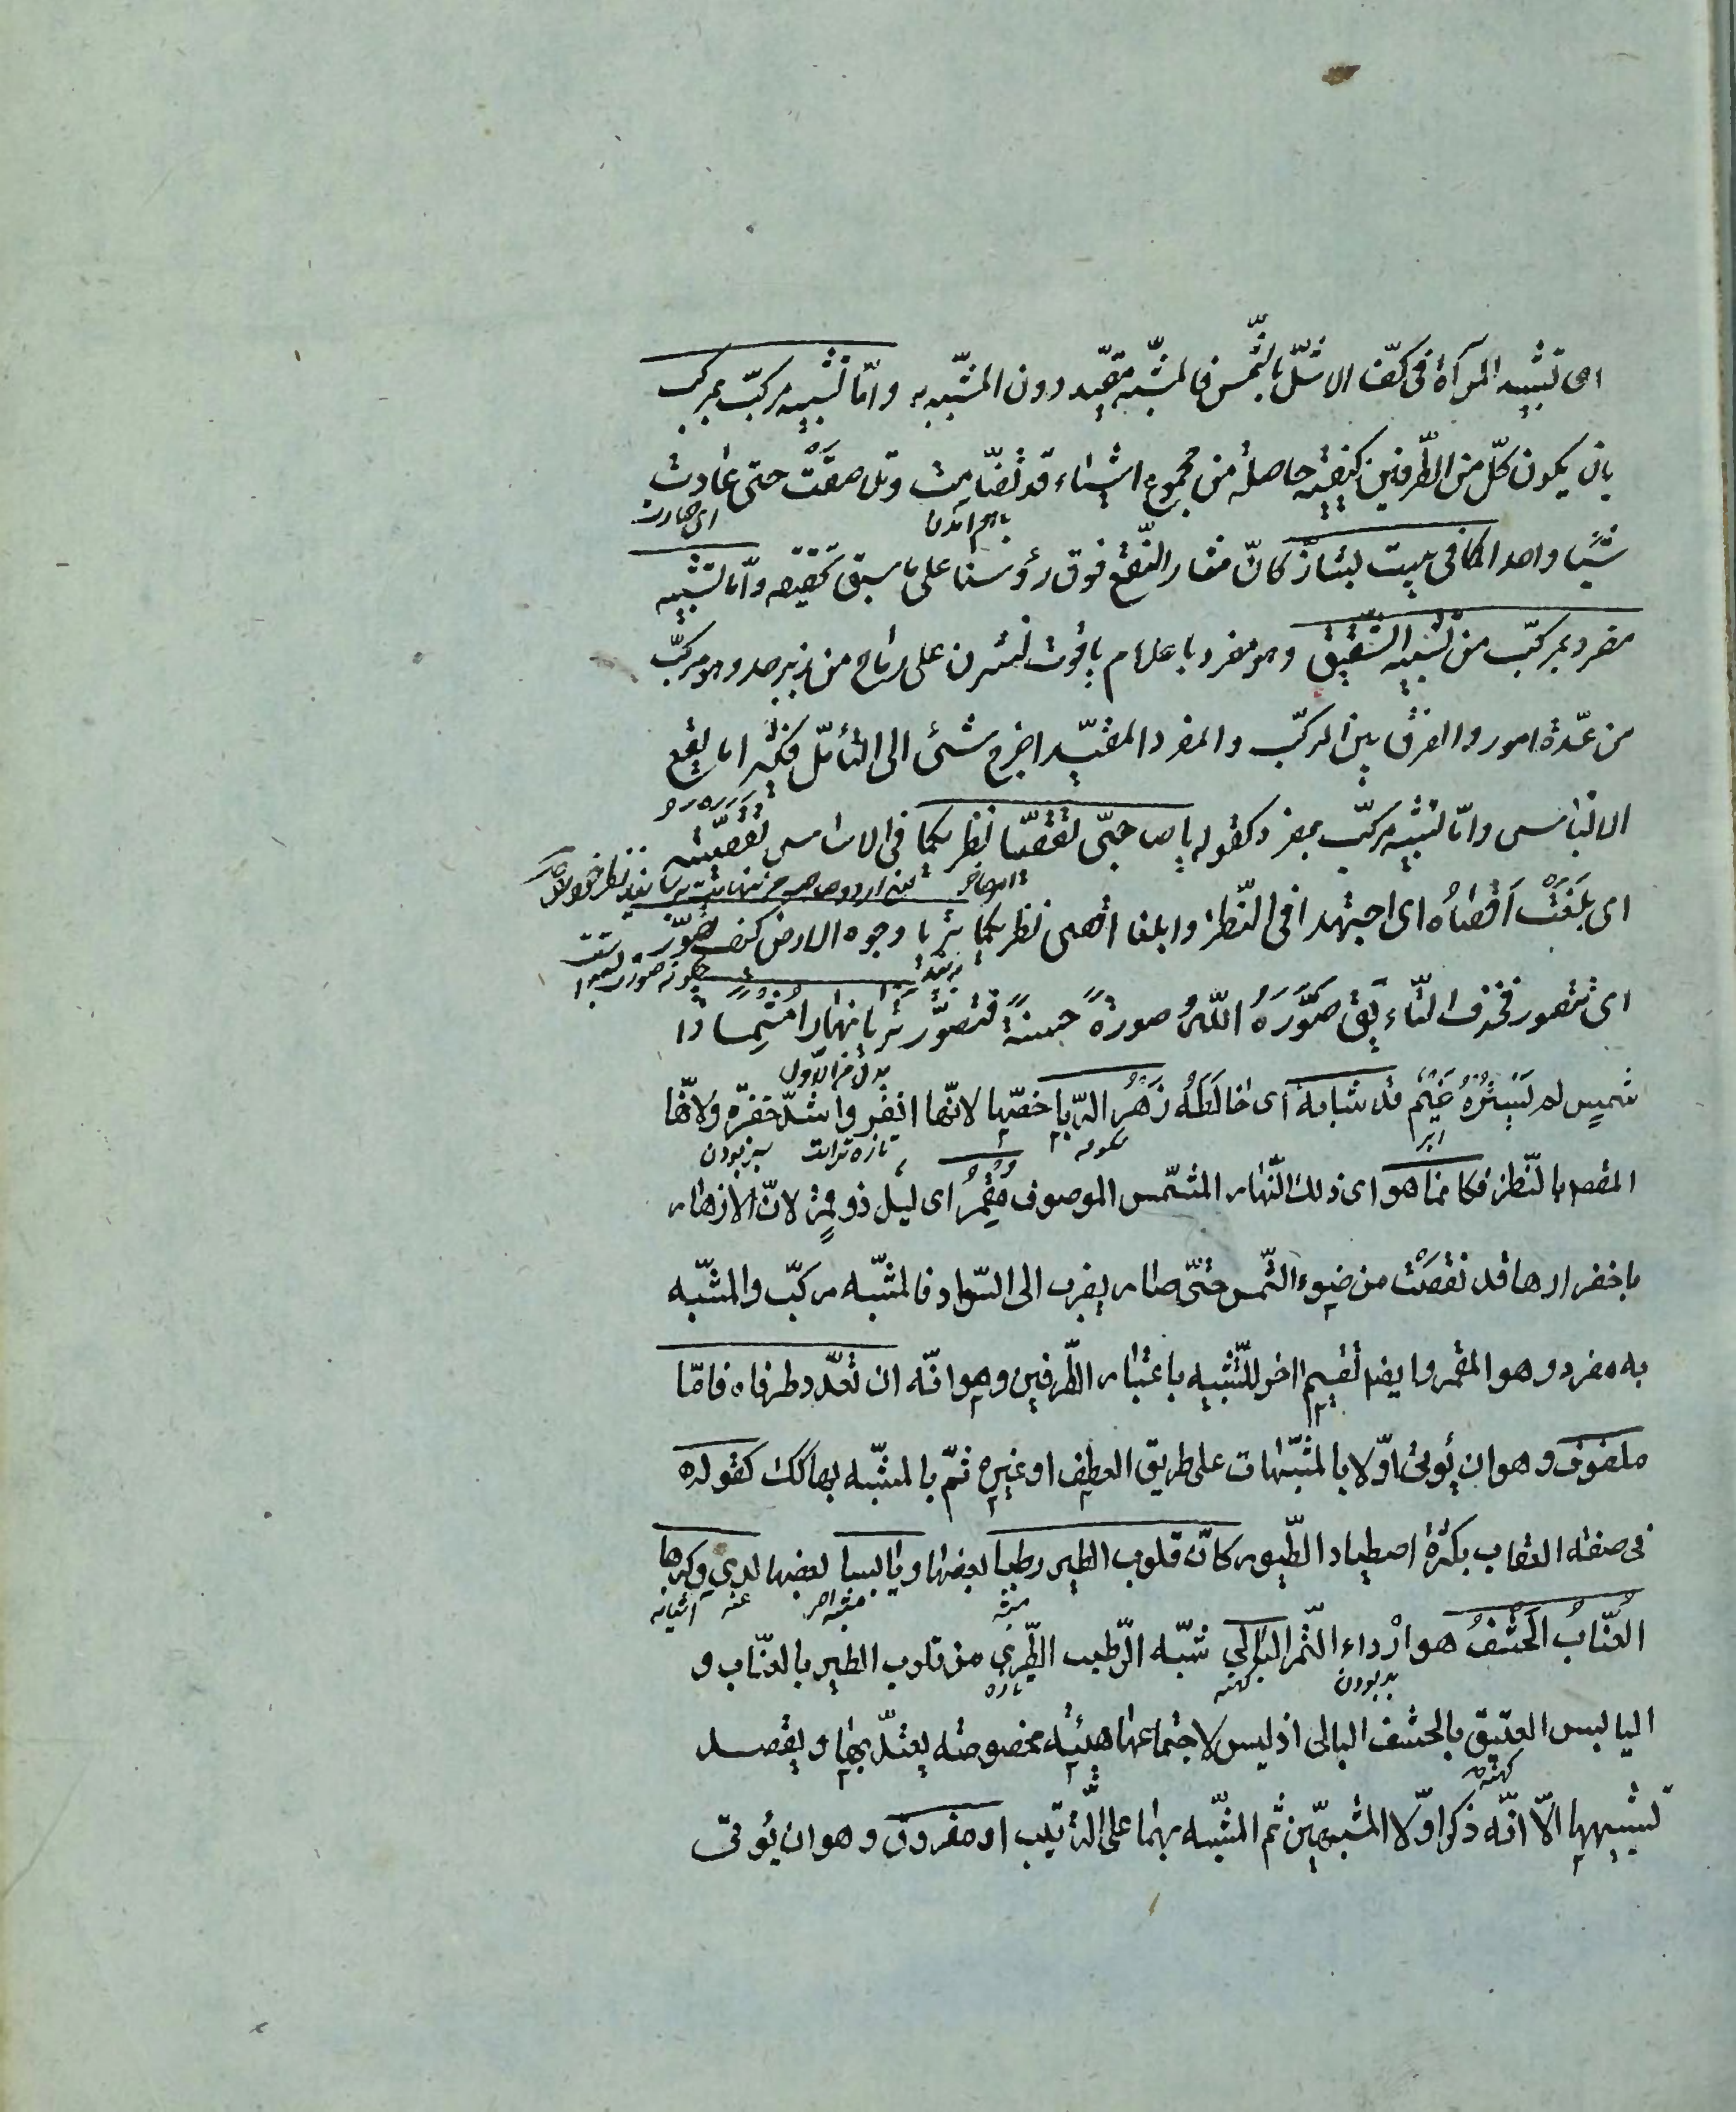 اى تشبيه المرآة فى كفّ الاشلّ بالشّمس فالمشبّه مقيّد دون المشبّه به وامّا تشبيه مركّب بمركب
بان يكون كلّ من الطّرفين كيفيّة حاصلة من مجموع اشياء قد تضامّت وتلاصقت حتى عادت
باهم آمدن
اى صارت
شيئا واحدا كما فى بيت بشّار كانّ مثار النّقع فوق رؤسنا على ما سبق تحقيقه وامّا تشبيه
مفرد بمركّب من تشبيه الشّقيق وهو مفرد باعلام ياقوت نشرن على رماح من زبرجد وهو مركّب
من عدّة امور والفرق بين المركّب والمفرد المقيّد احوج شئ الى التأمّل فكثيرا ما يقع
الالتباس وامّا تشبيه مركّب بمفرد كقوله يا صاحبىّ تقصّيا نظريكما فى الاساس تقصّيته
اى بلغت اقصاه اى اجتهدا فى النّظر وابلغا اقصى نظريكما تريا وجوه الارض كيف تصوّر
اى تتصور فحذف التّاء يق صوّره اللّه صورةً حسنةً فتصوّر تريا نهارا مشمسا ذا
بدل من الاوّل
شميس لم يستره غيم قد شابه اى خالطه زهر الرّبا خصّها لانّها انضر واشدّ خضرة ولانّها
ابر
تازه تر است
سبز بودن
المقصد بالنّظر فكانّما هو اى ذلك النّهار المشمس الموصوف مقمر اى ليل ذو قمر لانّ الازهار
باخضرارها قد نقصت من ضوء الشّمس حتّى صار يضرب الى السّواد فالمشبّه مركّب والمشبّه
به مفرد وهو المقمر وايضا تقسيم اخر للتّشبيه باعتبار الطّرفين وهو انّه ان تعدّد طرفاه فامّا
ملفوف وهو ان يؤتى اوّلا بالمشبّهات على طريق العطف او غيره ثمّ بالمشبّه بها كك كقوله
فى صفة العقاب بكثرة اصطياد الطّيور كانّ قلوب الطير رطبا بعضها ويابسا بعضها لدى وكرها
مشبّه
مشبّه اخر
عند
آشيانه
العنّاب الحشف هو ارداء التّمر البالى شبّه الرّطب الطّرى من قلوب الطير بالعنّاب و
بد بودن
كهنه
تازه
اليابس العتيق بالحشف البالى اذ ليس لاجتماعها هيئة مخصوصة يعتدّ بها ويقصد
كهنه
تشبيهها الّا انّه ذكر اوّلا المشبهين ثم المشبّه بهما على التّرتيب او مفروق وهو ان يؤتى